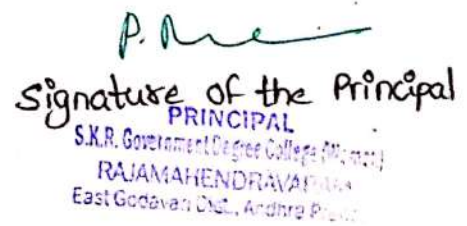 P.
Signature of the Principal
PRINCIPAL
S.K.R. Government Degree College
RAJAMAHENDRAVARAM
East Godavari Dist., Andhra